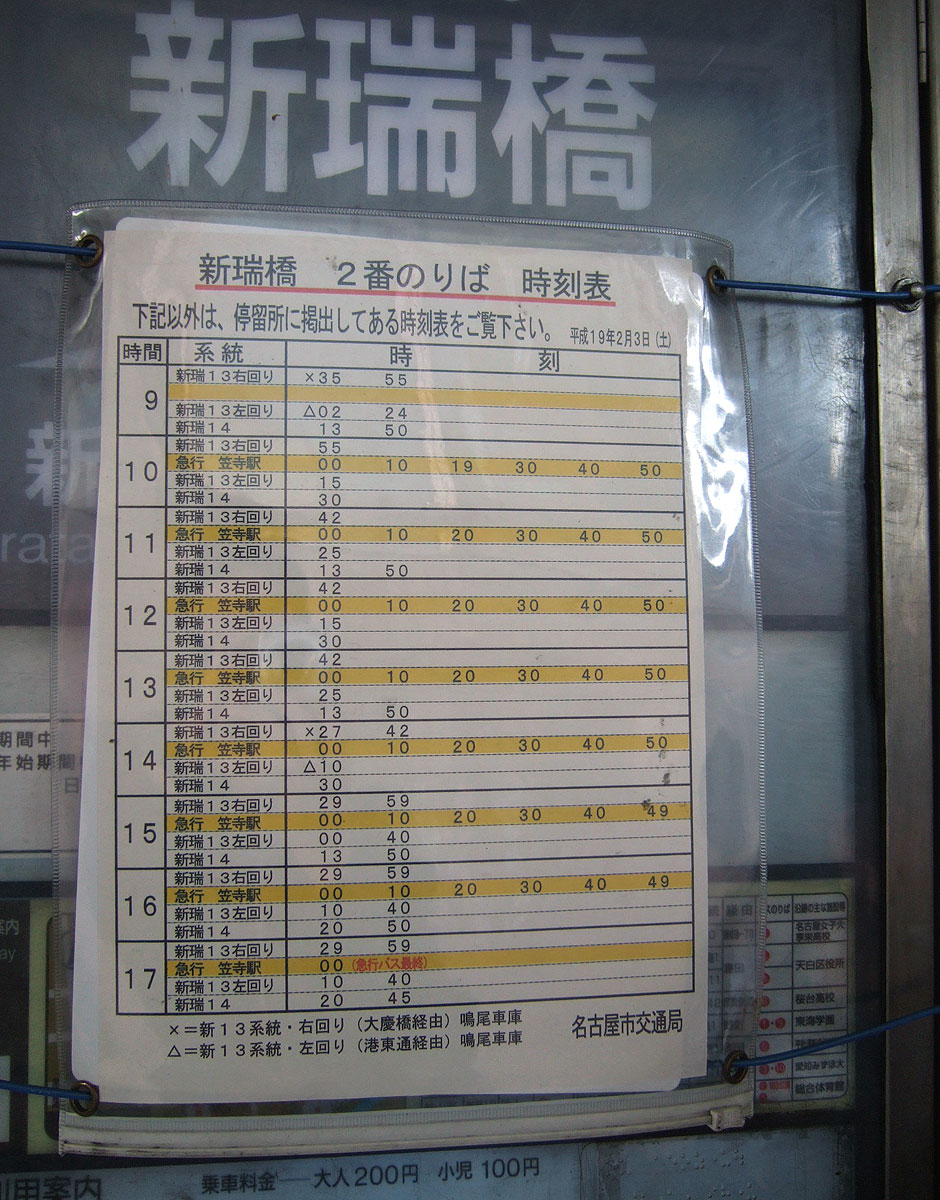 新瑞橋
新瑞橋 2番のりば 時刻表
下記以外は、停留所に掲出してある時刻表をご覧下さい。 平成19年2月3日(土)
時間 系統 時 刻
9
新瑞13右回り ×35 55
新瑞13左回り △02 24
新瑞14 13 50
10
新瑞13右回り 55
急行 笠寺駅 00 10 19 30 40 50
新瑞13左回り 15
新瑞14 30
11
新瑞13右回り 42
急行 笠寺駅 00 10 20 30 40 50
新瑞13左回り 25
新瑞14 13 50
12
新瑞13右回り 42
急行 笠寺駅 00 10 20 30 40 50
新瑞13左回り 15
新瑞14 30
13
新瑞13右回り 42
急行 笠寺駅 00 10 20 30 40 50
新瑞13左回り 25
新瑞14 13 50
14
新瑞13右回り ×27 42
急行 笠寺駅 00 10 20 30 40 50
新瑞13左回り △10
新瑞14 30
15
新瑞13右回り 29 59
急行 笠寺駅 00 10 20 30 40 49
新瑞13左回り 00 40
新瑞14 13 50
16
新瑞13右回り 29 59
急行 笠寺駅 00 10 20 30 40 49
新瑞13左回り 10 40
新瑞14 20 50
17
新瑞13右回り 29 59
急行 笠寺駅 00 (急行バス最終)
新瑞13左回り 10 40
新瑞14 20 45
×=新13系統・右回り(大慶橋経由)鳴尾車庫
△=新13系統・左回り(港東通経由)鳴尾車庫
名古屋市交通局
新
期間中
年始期間
日
案内
経由 のりば 沿線の主な施設等
名古屋女子大
享栄高校
天白区役所
桜台高校
東海学園
愛知みずほ大
総合体育館
利用案内 乗車料金 大人200円 小児100円